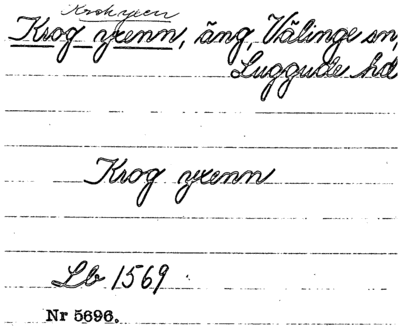 Krokyxen
Krog yxenn, äng, Välinge sn,
Luggude hd
Krog yxenn
Lb 1569
Nr 5696.